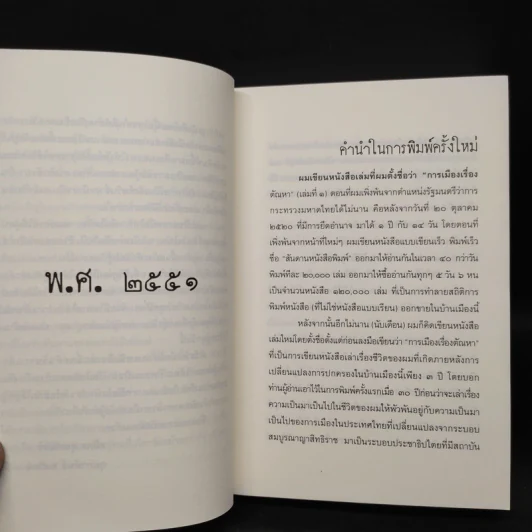 พ.ศ. ๒๕๕๑
คำนำในการพิมพ์ครั้งใหม่
ผมเขียนหนังสือเล่มที่ผมตั้งชื่อว่า "การเมืองเรื่อง
ตัณหา" (เล่มที่ ๑) ตอนที่ผมเพิ่งพ้นจากตำแหน่งรัฐมนตรีว่าการ
กระทรวงมหาดไทยได้ไม่นาน คือหลังจากวันที่ ๒๐ ตุลาคม
๒๕๒๐ ที่มีการยึดอำนาจ มาได้ ๑ ปี กับ ๑๔ วัน โดยตอนที่
เพิ่งพ้นจากหน้าที่ใหม่ๆ ผมเขียนหนังสือแบบเขียนเร็ว พิมพ์เร็ว
ชื่อ "สันดานหนังสือพิมพ์" ออกมาให้อ่านกันในเวลา ๔๐ กว่าวัน
พิมพ์ทีละ ๒๐,๐๐๐ เล่ม ออกมาให้ซื้ออ่านกันทุกๆ ๕ วัน ๖ หน
เป็นจำนวนหนังสือ ๑๒๐,๐๐๐ เล่ม ที่เป็นการทำลายสถิติการ
พิมพ์หนังสือ (ที่ไม่ใช่หนังสือแบบเรียน) ออกขายในบ้านเมืองนี้
หลังจากนั้นอีกไม่นาน (นับเดือน) ผมก็คิดเขียนหนังสือ
เล่มใหม่โดยตั้งชื่อตั้งแต่ก่อนลงมือเขียนว่า "การเมืองเรื่องตัณหา"
ที่เป็นการเขียนหนังสือเล่าเรื่องชีวิตของผมที่เกิดภายหลังการ
เปลี่ยนแปลงการปกครองในบ้านเมืองนี้เพียง ๓ ปี โดยบอก
ท่านผู้อ่านเอาไว้ในการพิมพ์ครั้งแรกเมื่อ ๓๐ ปีก่อนว่าจะเล่าเรื่อง
ความเป็นมาเป็นไปในชีวิตของผมให้พัวพันอยู่กับความเป็นมา
เป็นไปของการเมืองในประเทศไทยที่เปลี่ยนแปลงจากระบอบ
สมบูรณาญาสิทธิราช มาเป็นระบอบประชาธิปไตยที่มีสถาบัน